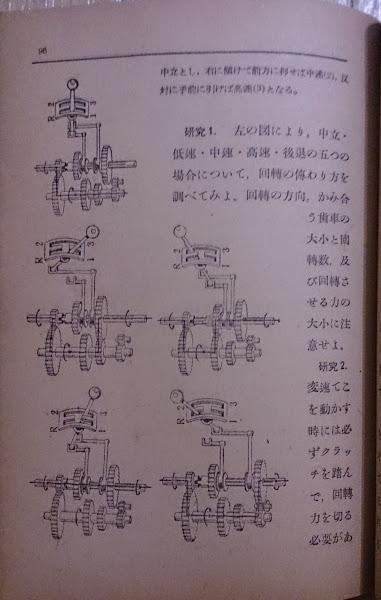 96
中立とし，右に傾けて前方に押せば中速(2)，反
対に手前に引けば高速(3)となる。
研究1. 左の図により，中立・
低速・中速・高速・後退の五つの
場合について，回轉の傳わり方を
調べてみよ。回轉の方向，かみ合
う歯車の
大小と回
轉数，及
び回轉さ
せる力の
大小に注
意せよ。
研究2.
変速てこ
を動かす
時には必
ずクラッ
チを踏ん
で，回轉
力を切る
必要があ
R 2
1 3
R 2
1 3
R 2
1 3
R 2
1 3
R 2
1 3